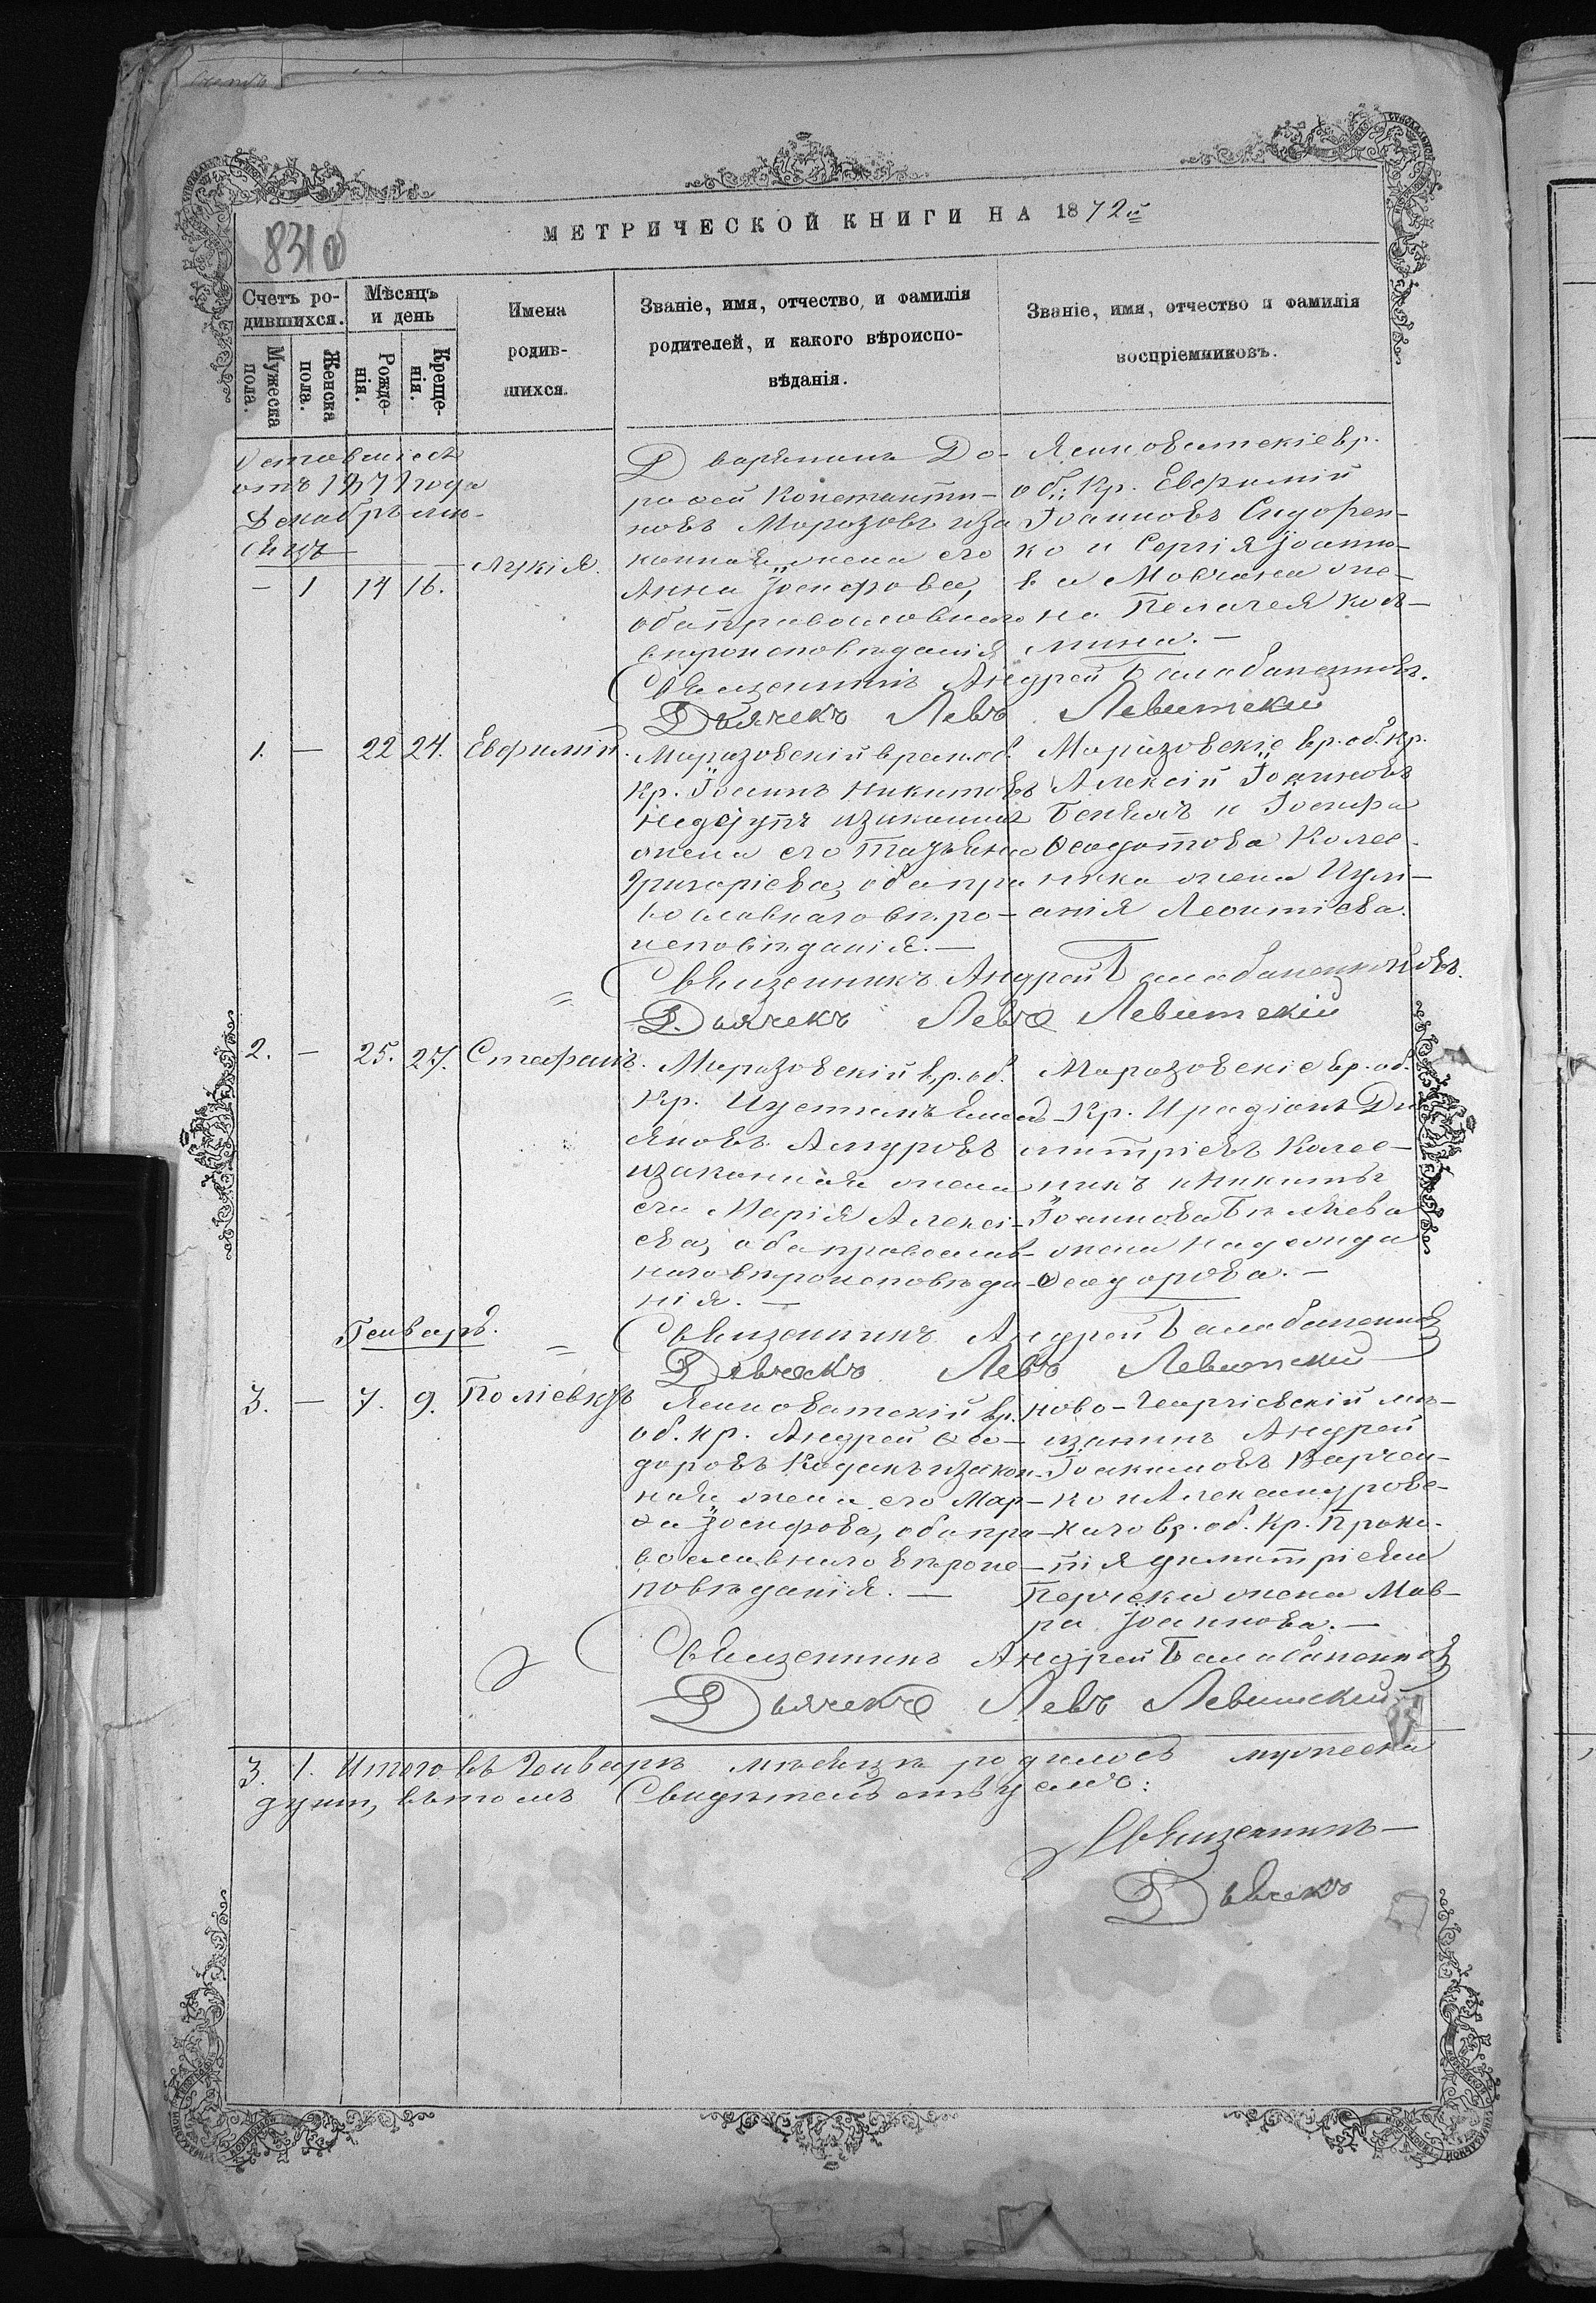 МЕТРИЧЕСКОЙ КНИГИ НА 1872й
831
Счетъ ро-
дившихся.
Мѣсяцъ
и день
Имена
родив-
шихся.
Званіе, имя, отчество, и фамилія
родителей, и какого вѣроиспо-
вѣданія.
Званіе, имя, отчество и фамилія
воспріемниковъ.
Мужеска
пола.
Женска
пола.
Рожде-
нія.
Креще-
нія.
Оставшіесь
отъ 1871 года
Декабрь мѣ-
сяцъ
— 1 14 16. Лукія.
Дворянинъ До-
рофей Константи-
новъ Морозовъ иза
конная жена его
Анна Іосифова,
оба православнаго
вѣроисповѣданія
Ясиноватскіе вр.
об: Кр. Евфимій
Іоанновъ Сидорен-
ко и Сергія Іоанно-
ва Мовчана же-
на Пелагея Козь-
мина. —
Священникъ Андрей Балабаненковъ.
Дьячекъ Левъ Левитскій
1. — 22 24. Евфимій.
Марозовскій врем. об.
Кр. Іоаннъ Никитовъ
изаконная
жена его Татьяна
Григоріева, оба пра
вославнаго вѣро-
исповѣданія. —
Марозовскіе вр. об. Кр.
Алексій Іоанновъ
и Іосифа
Ѳеодотова Колес
ника жена Мела-
анія Леонтіева.
Священникъ Андрей Балабаненковъ.
Дьячекъ Левъ Левитскій
2. — 25. 27. Стефанъ.
Марозовскій вр. об.
Кр. Иустинъ Емель
яновъ
изаконная жена
его Марія Алексі-
ева, оба православ-
наго вѣроисповѣда-
нія. —
Марозовскіе вр. об.
Кр. Иродіонъ Ди
митріевъ Колес-
никъ и Никиты
Іоаннова Бѣляева
жена Надежда
Ѳеодорова. —
Генварь.
Священникъ Андрей Балабаненковъ
Дьячекъ Левъ Левитскій
3. — 7. 9. Поліевктъ
Ясиноватскій вр.
об. кр. Андрей Ѳео-
доровъ Коданъ изакон-
ная жена его Мар-
ѳа Іосифова, оба пра-
вославнаго вѣроис-
повѣданія. —
Ново-Георгіевскій мѣ-
щанинъ Андрей
Іоакимовъ Харчен-
ко и Александровс-
каго вр. об. Кр. Проко-
пія Димитріева
жена Мав-
ра Іоаннова. —
Священникъ Андрей Балабаненковъ
Дьячекъ Левъ Левитскій
3. 1. Итого въ Генварѣ мѣсяцѣ родилось мужеска
душъ, въ томъ Свидѣтельствуемъ:
Священникъ —
Дьячекъ